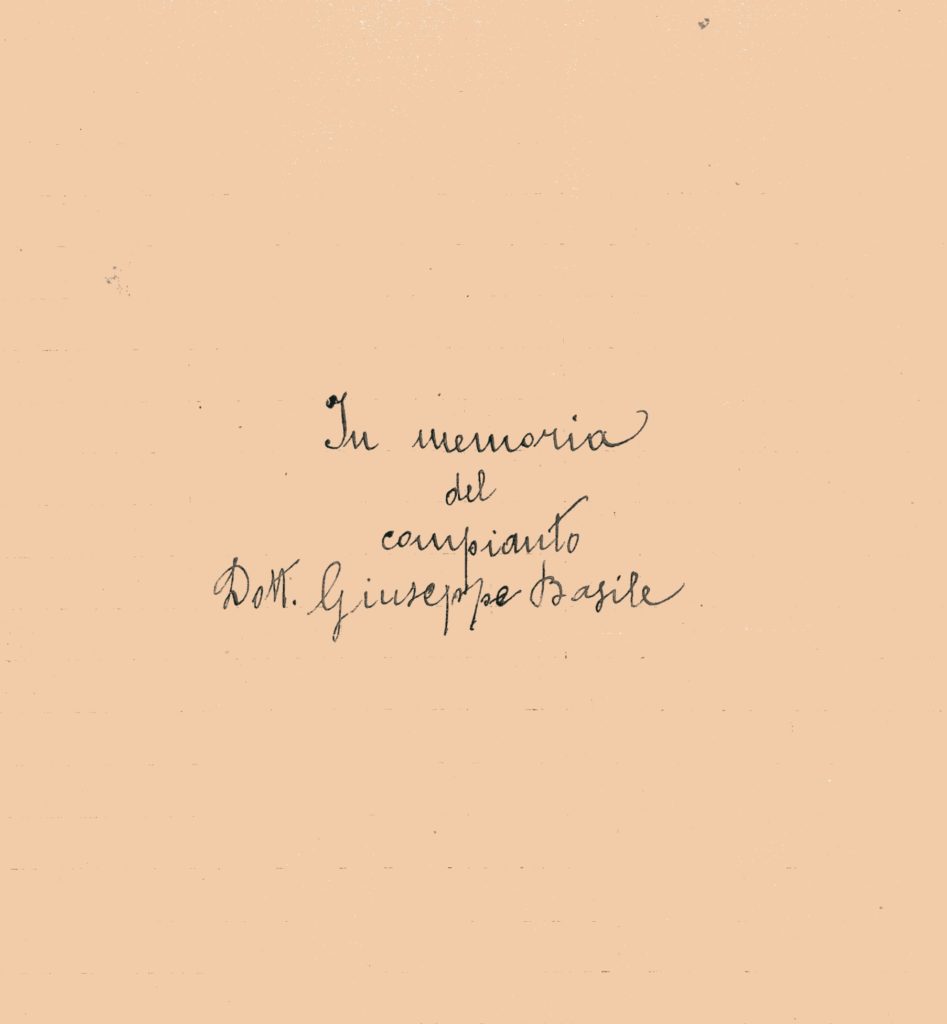 In memoria
del
compianto
Dott. Giuseppe Basile